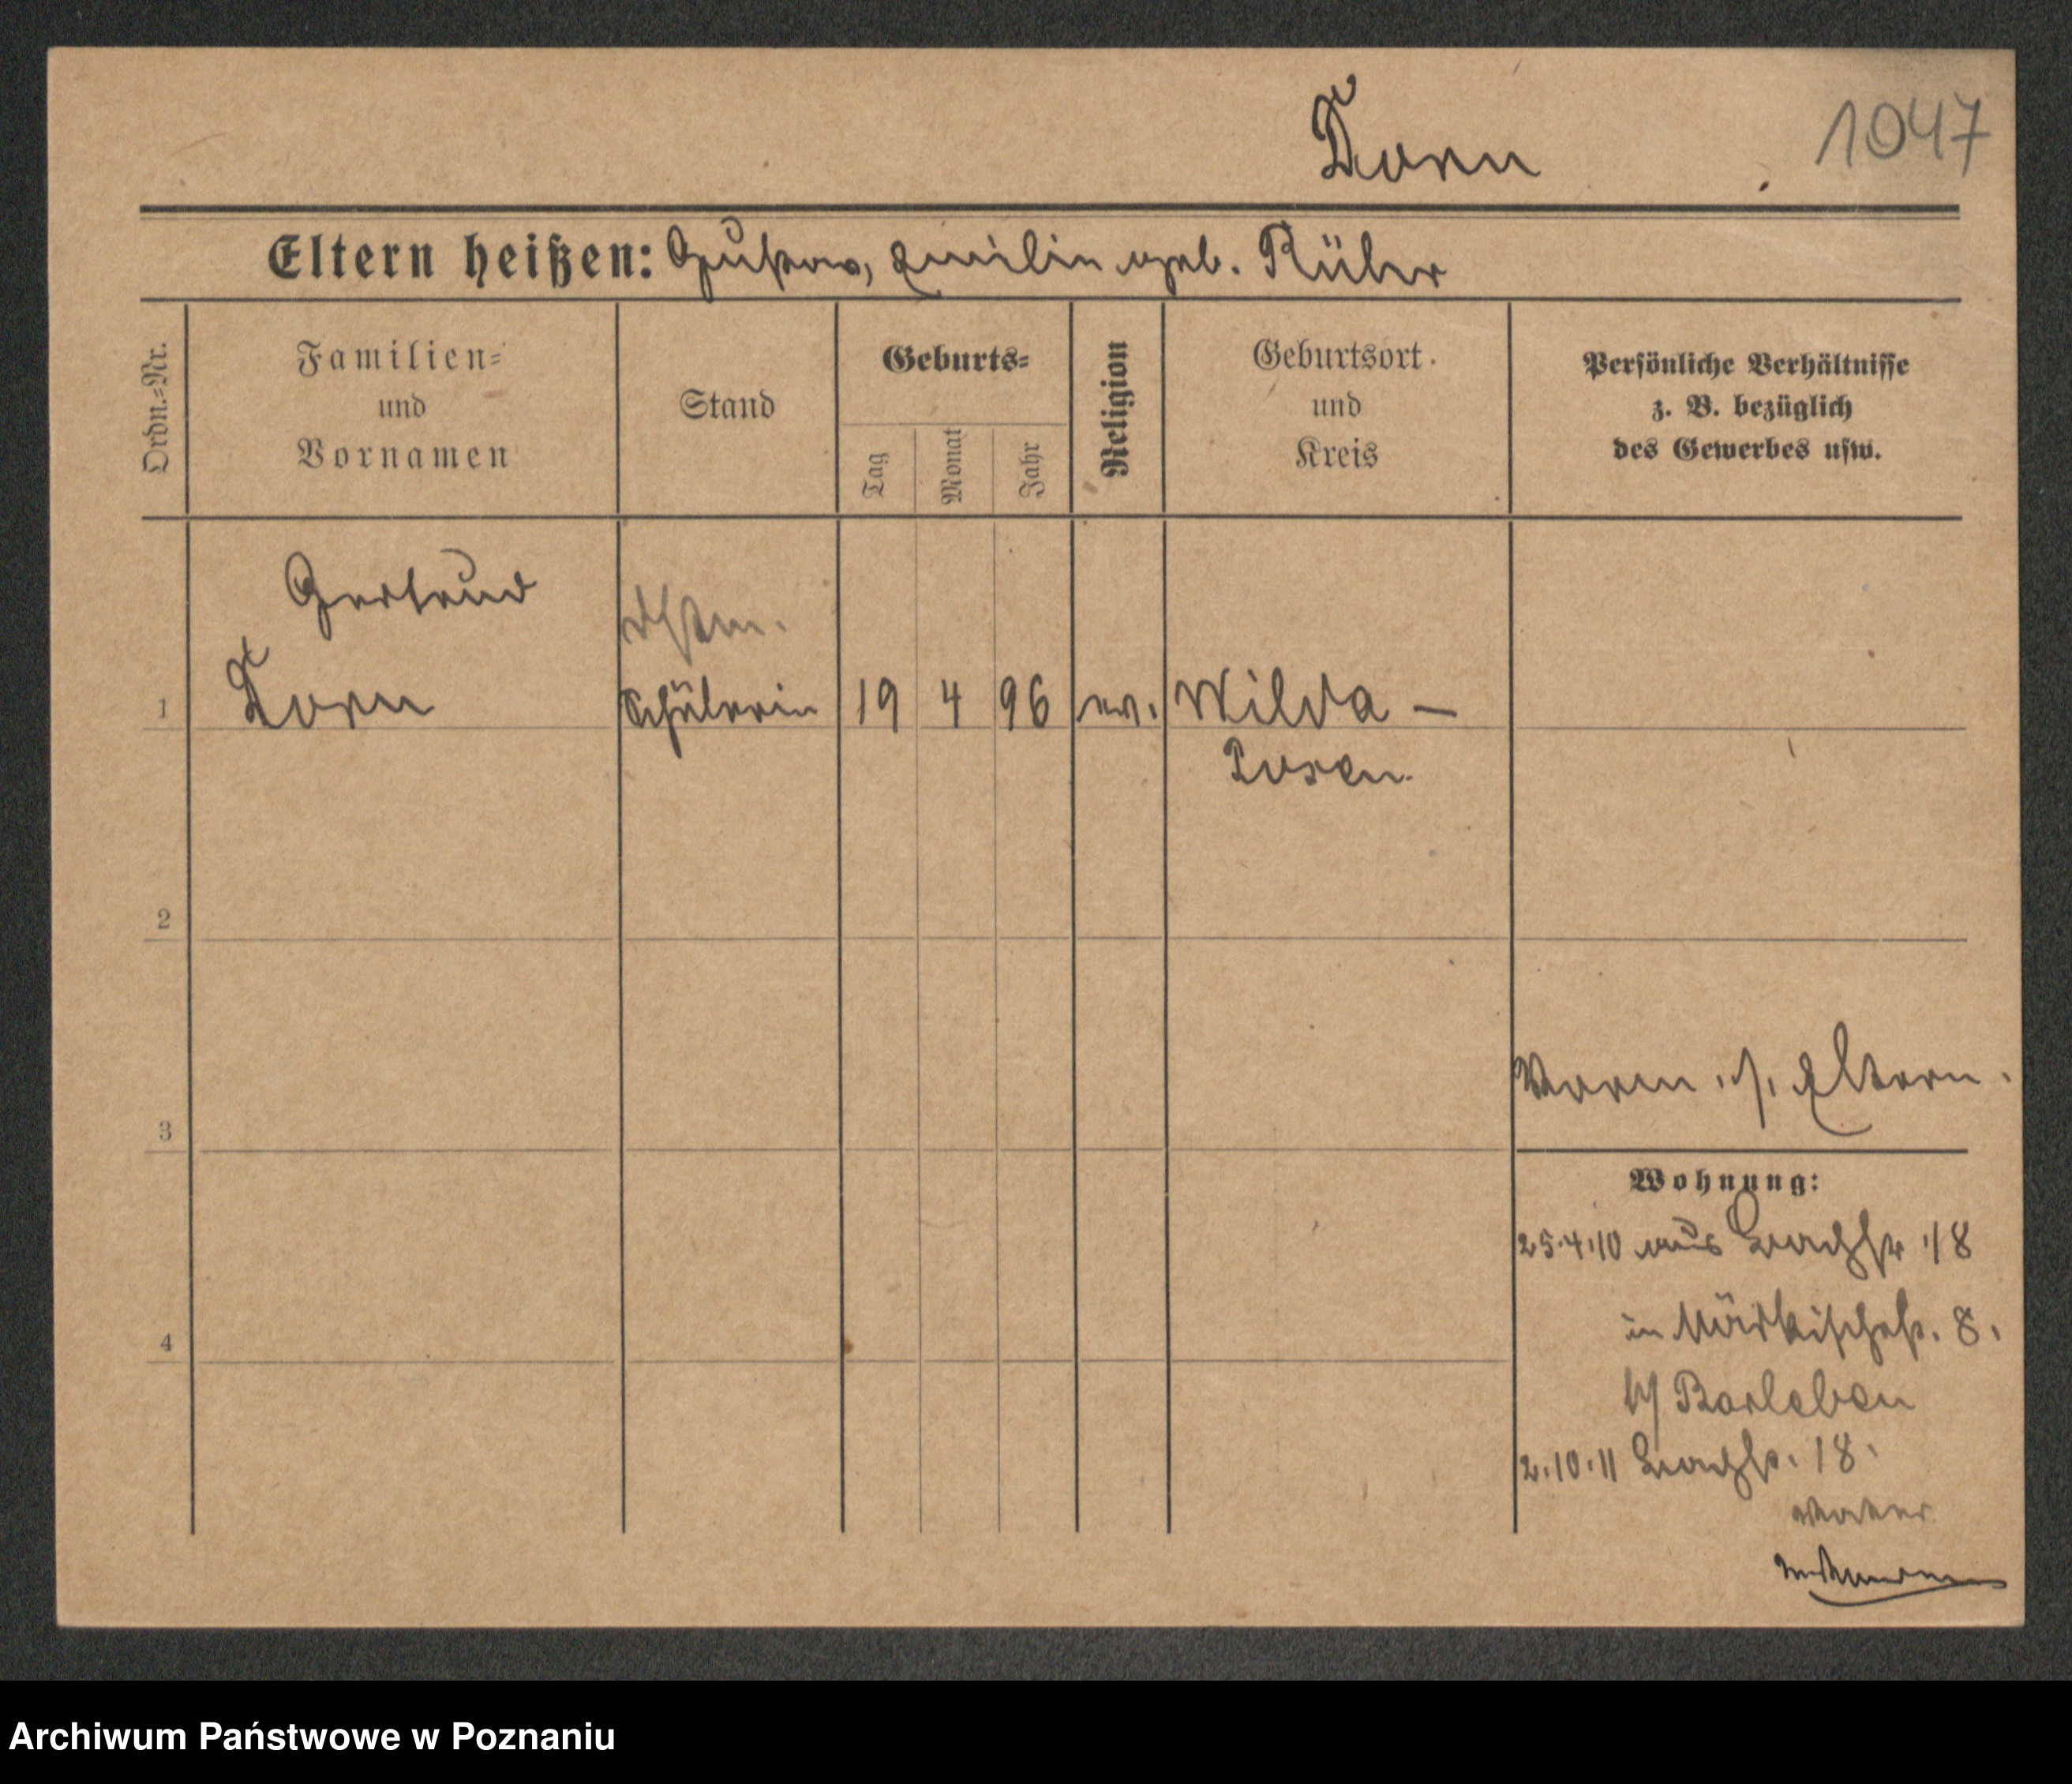 Dorn
1047
Eltern heißen: Gustav, Emilie geb. Rühr
Ordn.-Nr.
Familien-
und
Vornamen
Stand
Geburts-
Tag
Monat
Jahr
Religion
Geburtsort
und
Kreis
Persönliche Verhältnisse
z. B. bezüglich
des Gewerbes usw.
Gertrud
1 Dorn Schülerin 19 4 96 ev. Wilda –
Posen.
2
3
Eltern.
Wohnung:
25.4.10 aus 18
in Märkischestr. 8.
b/ Barleben
2.10.11 18.
Vater
4
Archiwum Państwowe w Poznaniu